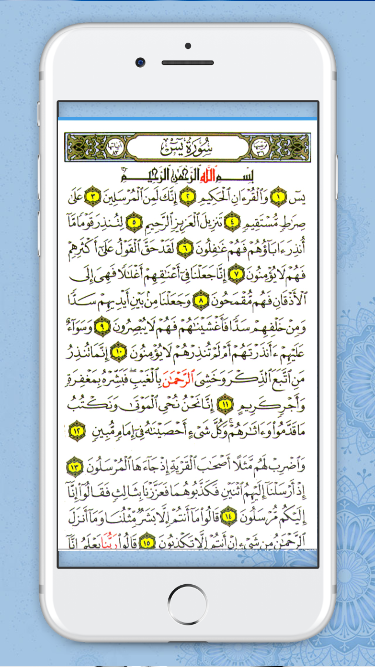 سُورَةُ يسٓ
بِسْمِ اللَّهِ الرَّحْمَٰنِ الرَّحِيمِ
يسٓ ۝١ وَالْقُرْءَانِ الْحَكِيمِ ۝٢ إِنَّكَ لَمِنَ الْمُرْسَلِينَ ۝٣ عَلَىٰ
صِرَٰطٍ مُّسْتَقِيمٍ ۝٤ تَنزِيلَ الْعَزِيزِ الرَّحِيمِ ۝٥ لِتُنذِرَ قَوْمًا مَّا
أُنذِرَ ءَابَآؤُهُمْ فَهُمْ غَٰفِلُونَ ۝٦ لَقَدْ حَقَّ الْقَوْلُ عَلَىٰٓ أَكْثَرِهِمْ
فَهُمْ لَا يُؤْمِنُونَ ۝٧ إِنَّا جَعَلْنَا فِىٓ أَعْنَٰقِهِمْ أَغْلَٰلًا فَهِىَ إِلَى
الْأَذْقَانِ فَهُم مُّقْمَحُونَ ۝٨ وَجَعَلْنَا مِنۢ بَيْنِ أَيْدِيهِمْ سَدًّا
وَمِنْ خَلْفِهِمْ سَدًّا فَأَغْشَيْنَٰهُمْ فَهُمْ لَا يُبْصِرُونَ ۝٩ وَسَوَآءٌ
عَلَيْهِمْ ءَأَنذَرْتَهُمْ أَمْ لَمْ تُنذِرْهُمْ لَا يُؤْمِنُونَ ۝١٠ إِنَّمَا تُنذِرُ
مَنِ اتَّبَعَ الذِّكْرَ وَخَشِىَ الرَّحْمَٰنَ بِالْغَيْبِ ۖ فَبَشِّرْهُ بِمَغْفِرَةٍ
وَأَجْرٍ كَرِيمٍ ۝١١ إِنَّا نَحْنُ نُحْىِ الْمَوْتَىٰ وَنَكْتُبُ
مَا قَدَّمُوا۟ وَءَاثَٰرَهُمْ ۚ وَكُلَّ شَىْءٍ أَحْصَيْنَٰهُ فِىٓ إِمَامٍ مُّبِينٍ ۝١٢
وَاضْرِبْ لَهُم مَّثَلًا أَصْحَٰبَ الْقَرْيَةِ إِذْ جَآءَهَا الْمُرْسَلُونَ ۝١٣
إِذْ أَرْسَلْنَآ إِلَيْهِمُ اثْنَيْنِ فَكَذَّبُوهُمَا فَعَزَّزْنَا بِثَالِثٍ فَقَالُوٓا۟ إِنَّآ
إِلَيْكُم مُّرْسَلُونَ ۝١٤ قَالُوا۟ مَآ أَنتُمْ إِلَّا بَشَرٌ مِّثْلُنَا وَمَآ أَنزَلَ
الرَّحْمَٰنُ مِن شَىْءٍ إِنْ أَنتُمْ إِلَّا تَكْذِبُونَ ۝١٥ قَالُوا۟ رَبُّنَا يَعْلَمُ إِنَّآ